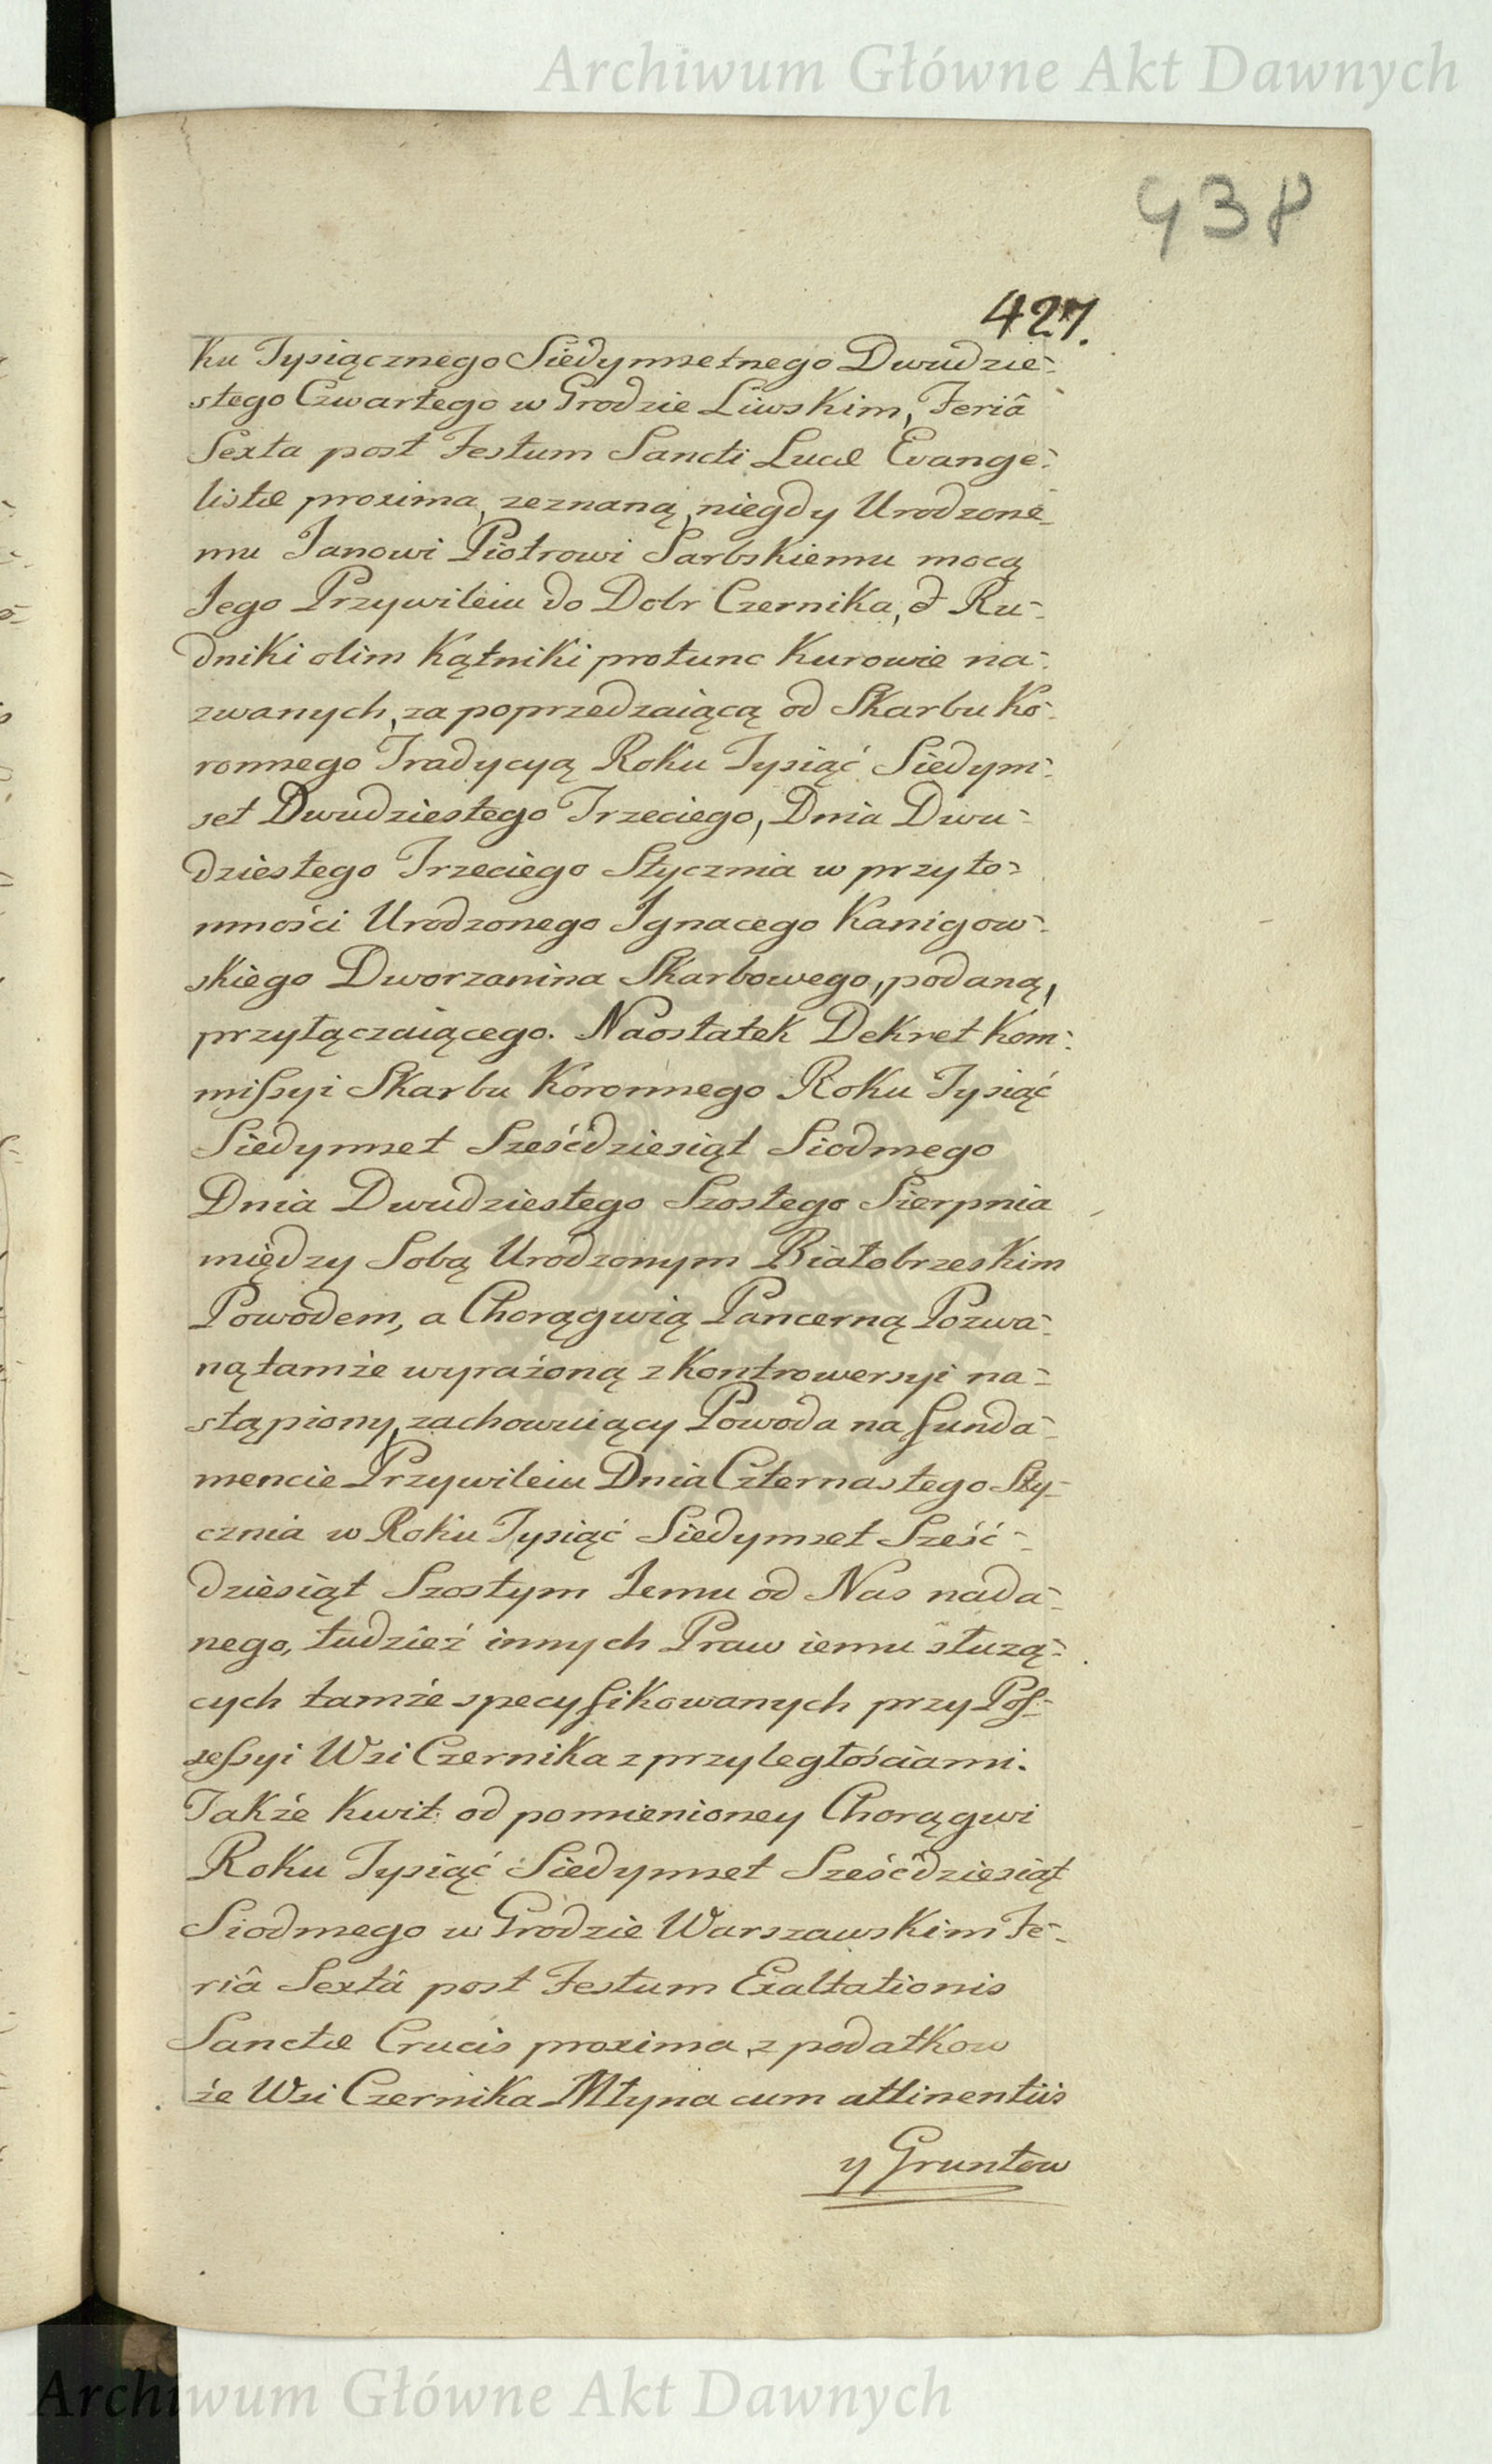 Archiwum Główne Akt Dawnych
438
427.
ku Tysiącznego Siedymsetnego Dwudzie-
stego Czwartego w Grodzie Liwskim, Feriâ
Sexta post Festum Sancti Lucæ Evange-
listæ proxima, zeznaną, niegdy Urodzone-
mu Janowi Piotrowi Sarbskiemu mocą
Jego Przywileiu do Dobr Czernika, & Ru-
dniki olim Kątniki protunc Kurowie na-
zwanych, za poprzedzaiącą od Skarbu Ko-
ronnego Tradycyą Roku Tysiąć Siedym-
set Dwudziestego Trzeciego, Dnia Dwu-
dziestego Trzeciego Stycznia w przyto-
mności Urodzonego Ignacego Kanigow-
skiego Dworzanina Skarbowego, podaną,
przyłączaiącego. Naostatek Dekret Kom-
mißyi Skarbu Koronnego Roku Tysiąć
Siedymset Sześćdziesiąt Siodmego
Dnia Dwudziestego Szostego Sierpnia
między Sobą Urodzonym Białobrzeskim
Powodem, a Chorągwią Pancerną Pozwa-
ną tamże wyrażoną z Kontrowersyi na-
stąpiony, zachowuiący Powoda na funda-
mencie Przywileiu Dnia Czternastego Sty-
cznia w Roku Tysiąć Siedymset Sześć-
dziesiąt Szostym Jemu od Nas nada-
nego, tudzież innych Praw iemu słuzą-
cych tamże specyfikowanych przy Pos-
seßyi Wsi Czernika z przyległościami.
Także Kwit od pomienioney Chorągwi
Roku Tysiąć Siedymset Sześćdziesiąt
Siodmego w Grodzie Warszawskim Fe-
riâ Sextâ post Festum Exaltationis
Sanctæ Crucis proxima, z podatkow
że Wsi Czernika Młyna cum attinentiis
y Gruntow
Archiwum Główne Akt Dawnych